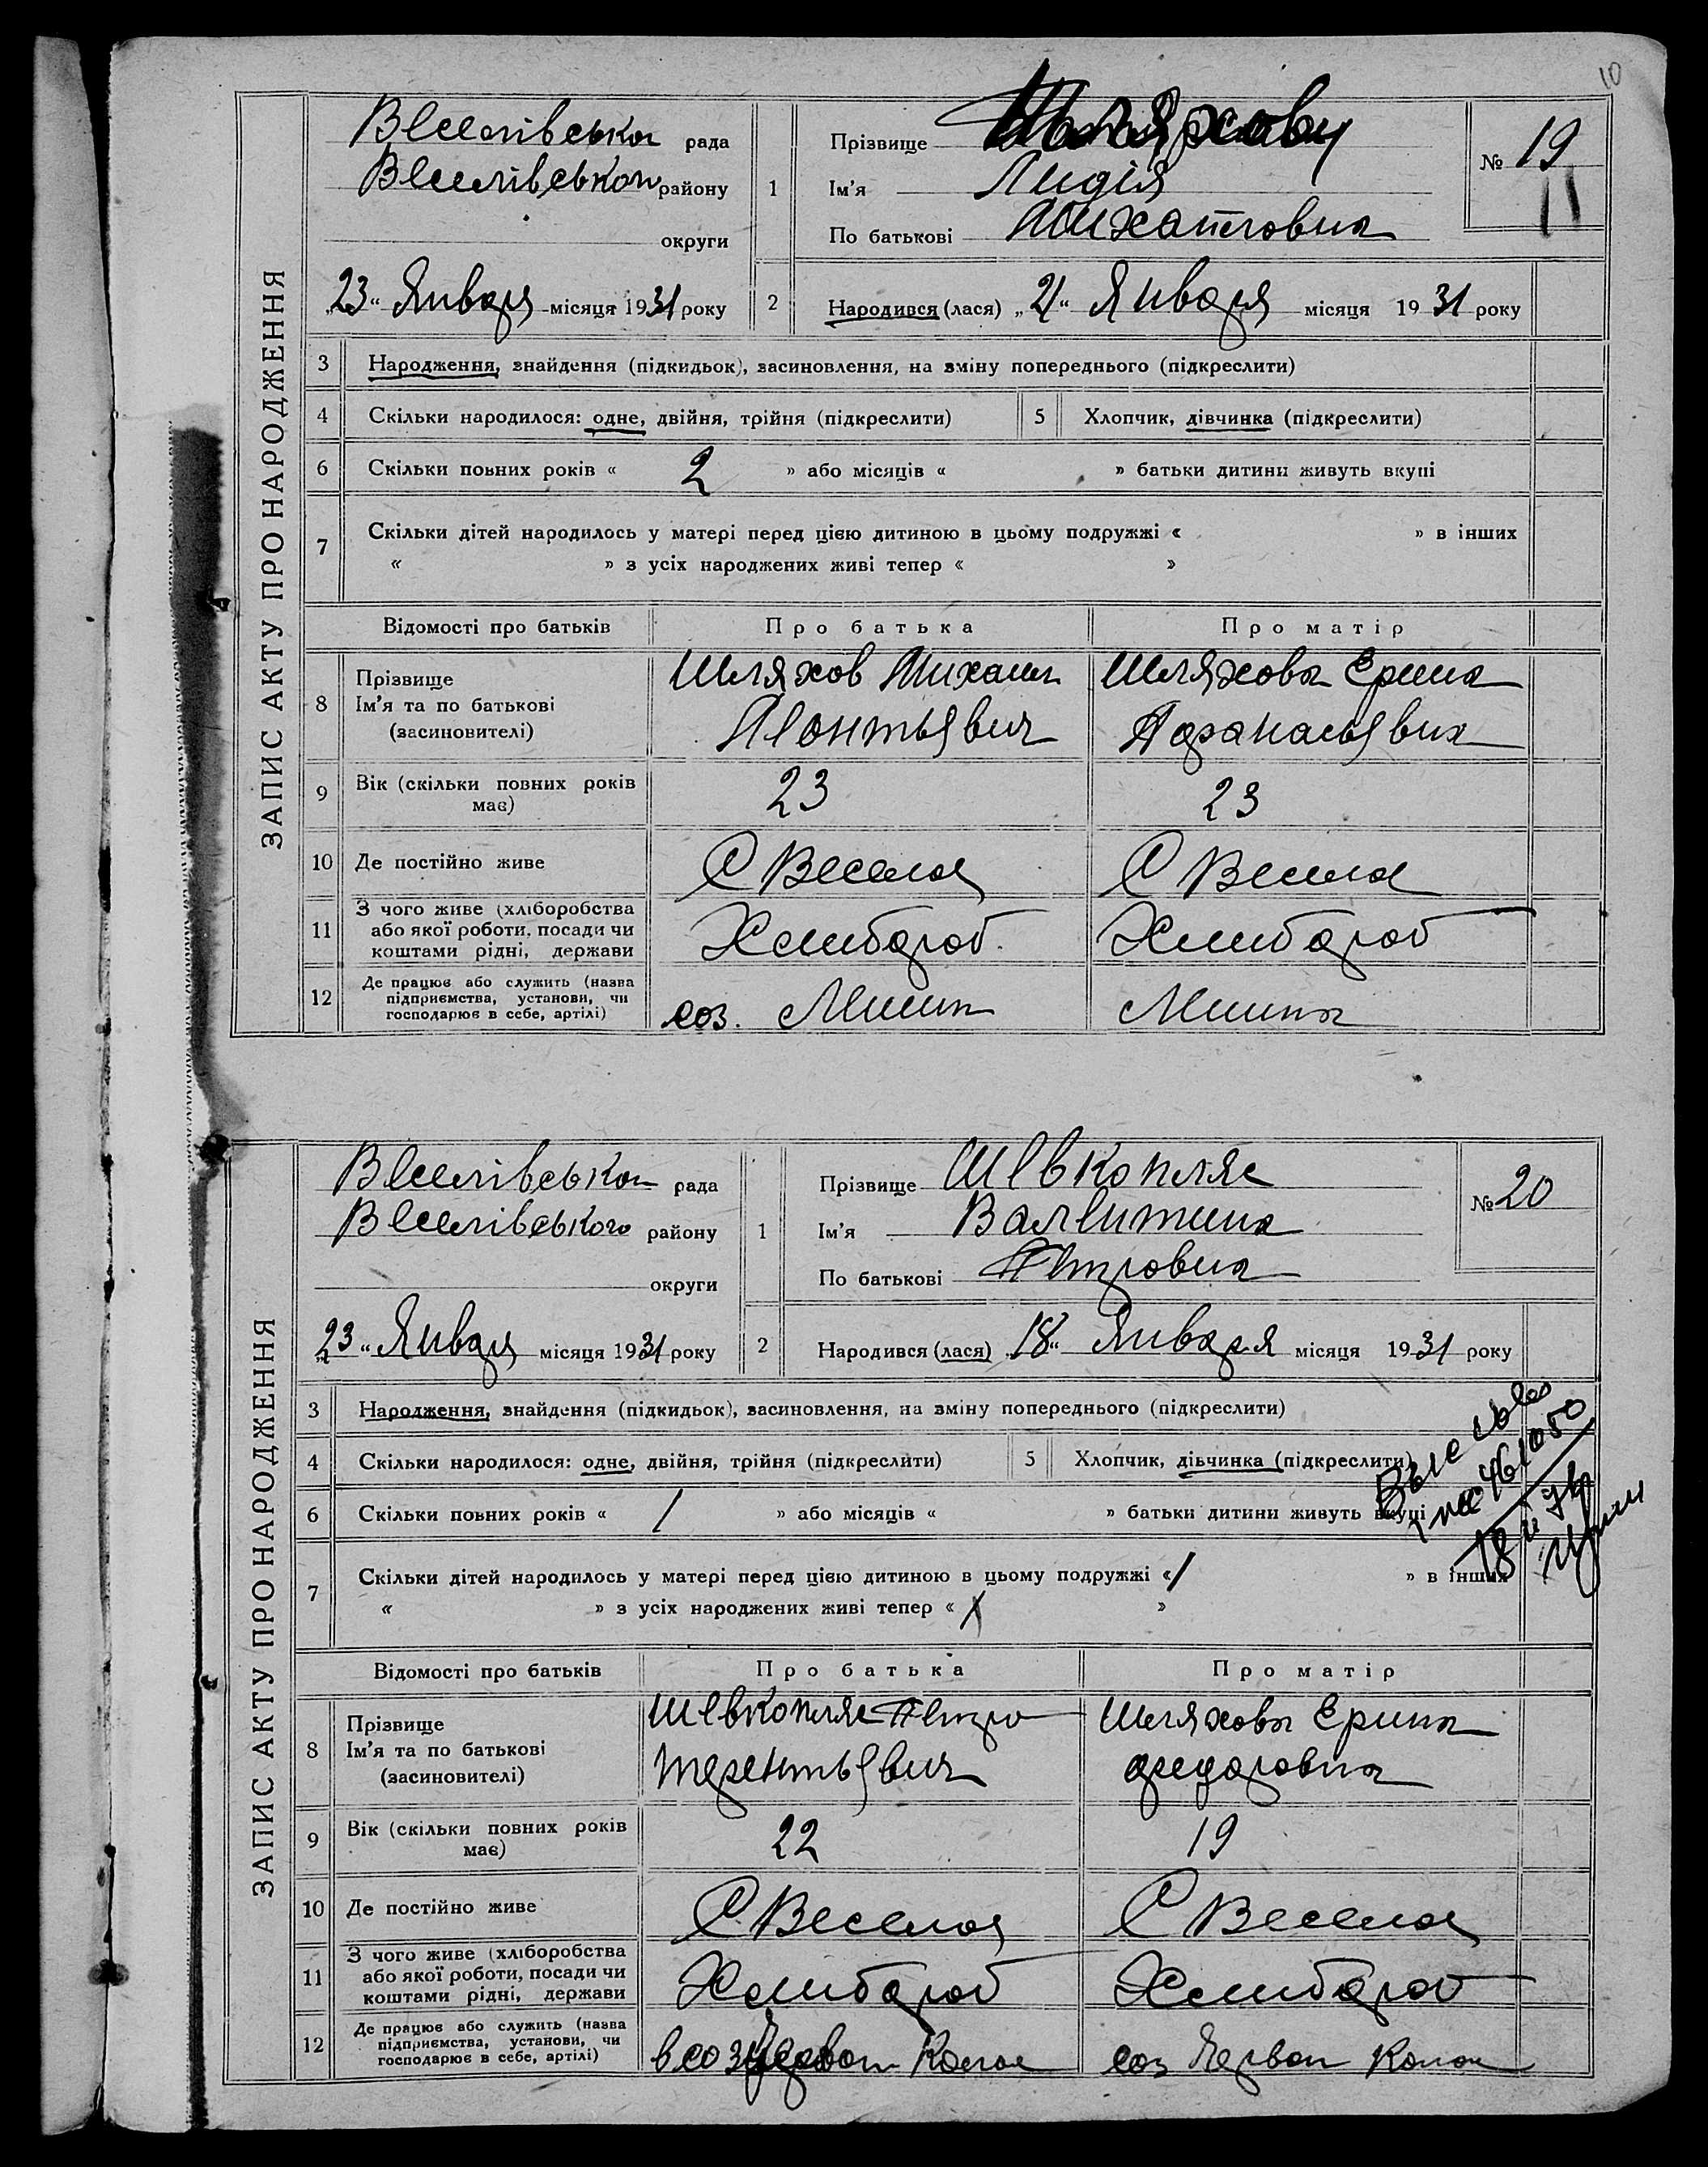 10
ЗАПИС АКТУ ПРО НАРОДЖЕННЯ
Веселівська рада
Веселівского району
округи
„23“ Января місяця 1931 року
1
Прізвище Шляхова
Ім'я Лидія
По батькові Михайловна
№ 19
11
2
Народився (лася) „21“ Января місяця 1931 року
3 Народження, знайдення (підкидьок), засиновлення, на зміну попереднього (підкреслити)
4 Скільки народилося: одне, двійня, трійня (підкреслити) 5 Хлопчик, дівчинка (підкреслити)
6 Скільки повних років « 2 » або місяців « » батьки дитини живуть вкупі
7 Скільки дітей народилось у матері перед цією дитиною в цьому подружжі « » в інших
« » з усіх народжених живі тепер « »
Відомості про батьків Про батька Про матір
8 Прізвище
Ім'я та по батькові
(засиновителі)
Шляхов Михаил
Леонтьевич
Шляхова Ерина
Афанасьевна
9 Вік (скільки повних років
має)
23 23
10 Де постійно живе С Веселое С Веселое
11 З чого живе (хліборобства
або якої роботи, посади чи
коштами рідні, держави
Хлибороб Хлибороб
12 Де працює або служить (назва
підприємства, установи, чи
господарює в себе, артілі)
соз.
ЗАПИС АКТУ ПРО НАРОДЖЕННЯ
Веселівська рада
Веселівського району
округи
„23“ Января місяця 1931 року
1
Прізвище Шевкопляс
Ім'я Валентина
По батькові Петровна
№ 20
2
Народився (лася) „18“ Января місяця 1931 року
3 Народження, знайдення (підкидьок), засиновлення, на зміну попереднього (підкреслити)
4 Скільки народилося: одне, двійня, трійня (підкреслити) 5 Хлопчик, дівчинка (підкреслити)
6 Скільки повних років « 1 » або місяців « » батьки дитини живуть вкупі
7 Скільки дітей народилось у матері перед цією дитиною в цьому подружжі « / » в інших
« » з усіх народжених живі тепер « »
Відомості про батьків Про батька Про матір
8 Прізвище
Ім'я та по батькові
(засиновителі)
Шевкопляс Петро
Терентьевич
Шляхова Ерина
федоровна
9 Вік (скільки повних років
має)
22 19
10 Де постійно живе С Веселое С Веселое
11 З чого живе (хліборобства
або якої роботи, посади чи
коштами рідні, держави
Хлибороб Хлибороб
12 Де працює або служить (назва
підприємства, установи, чи
господарює в себе, артілі)
в соз
соз